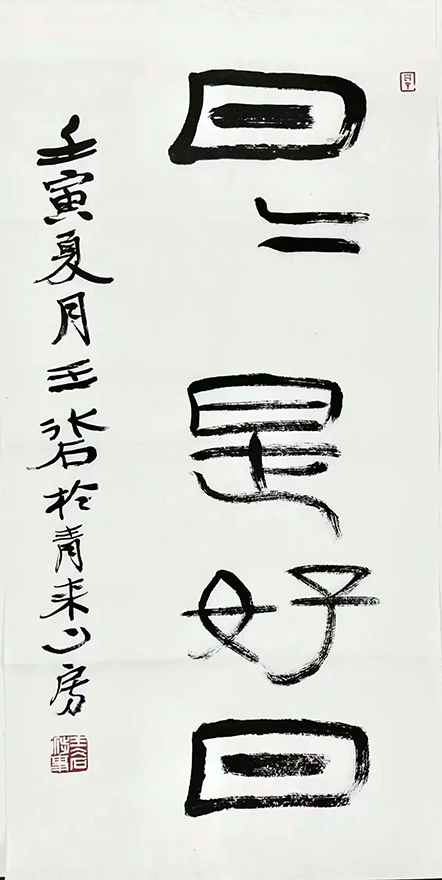 日々是好日
壬寅夏月王於青来山房